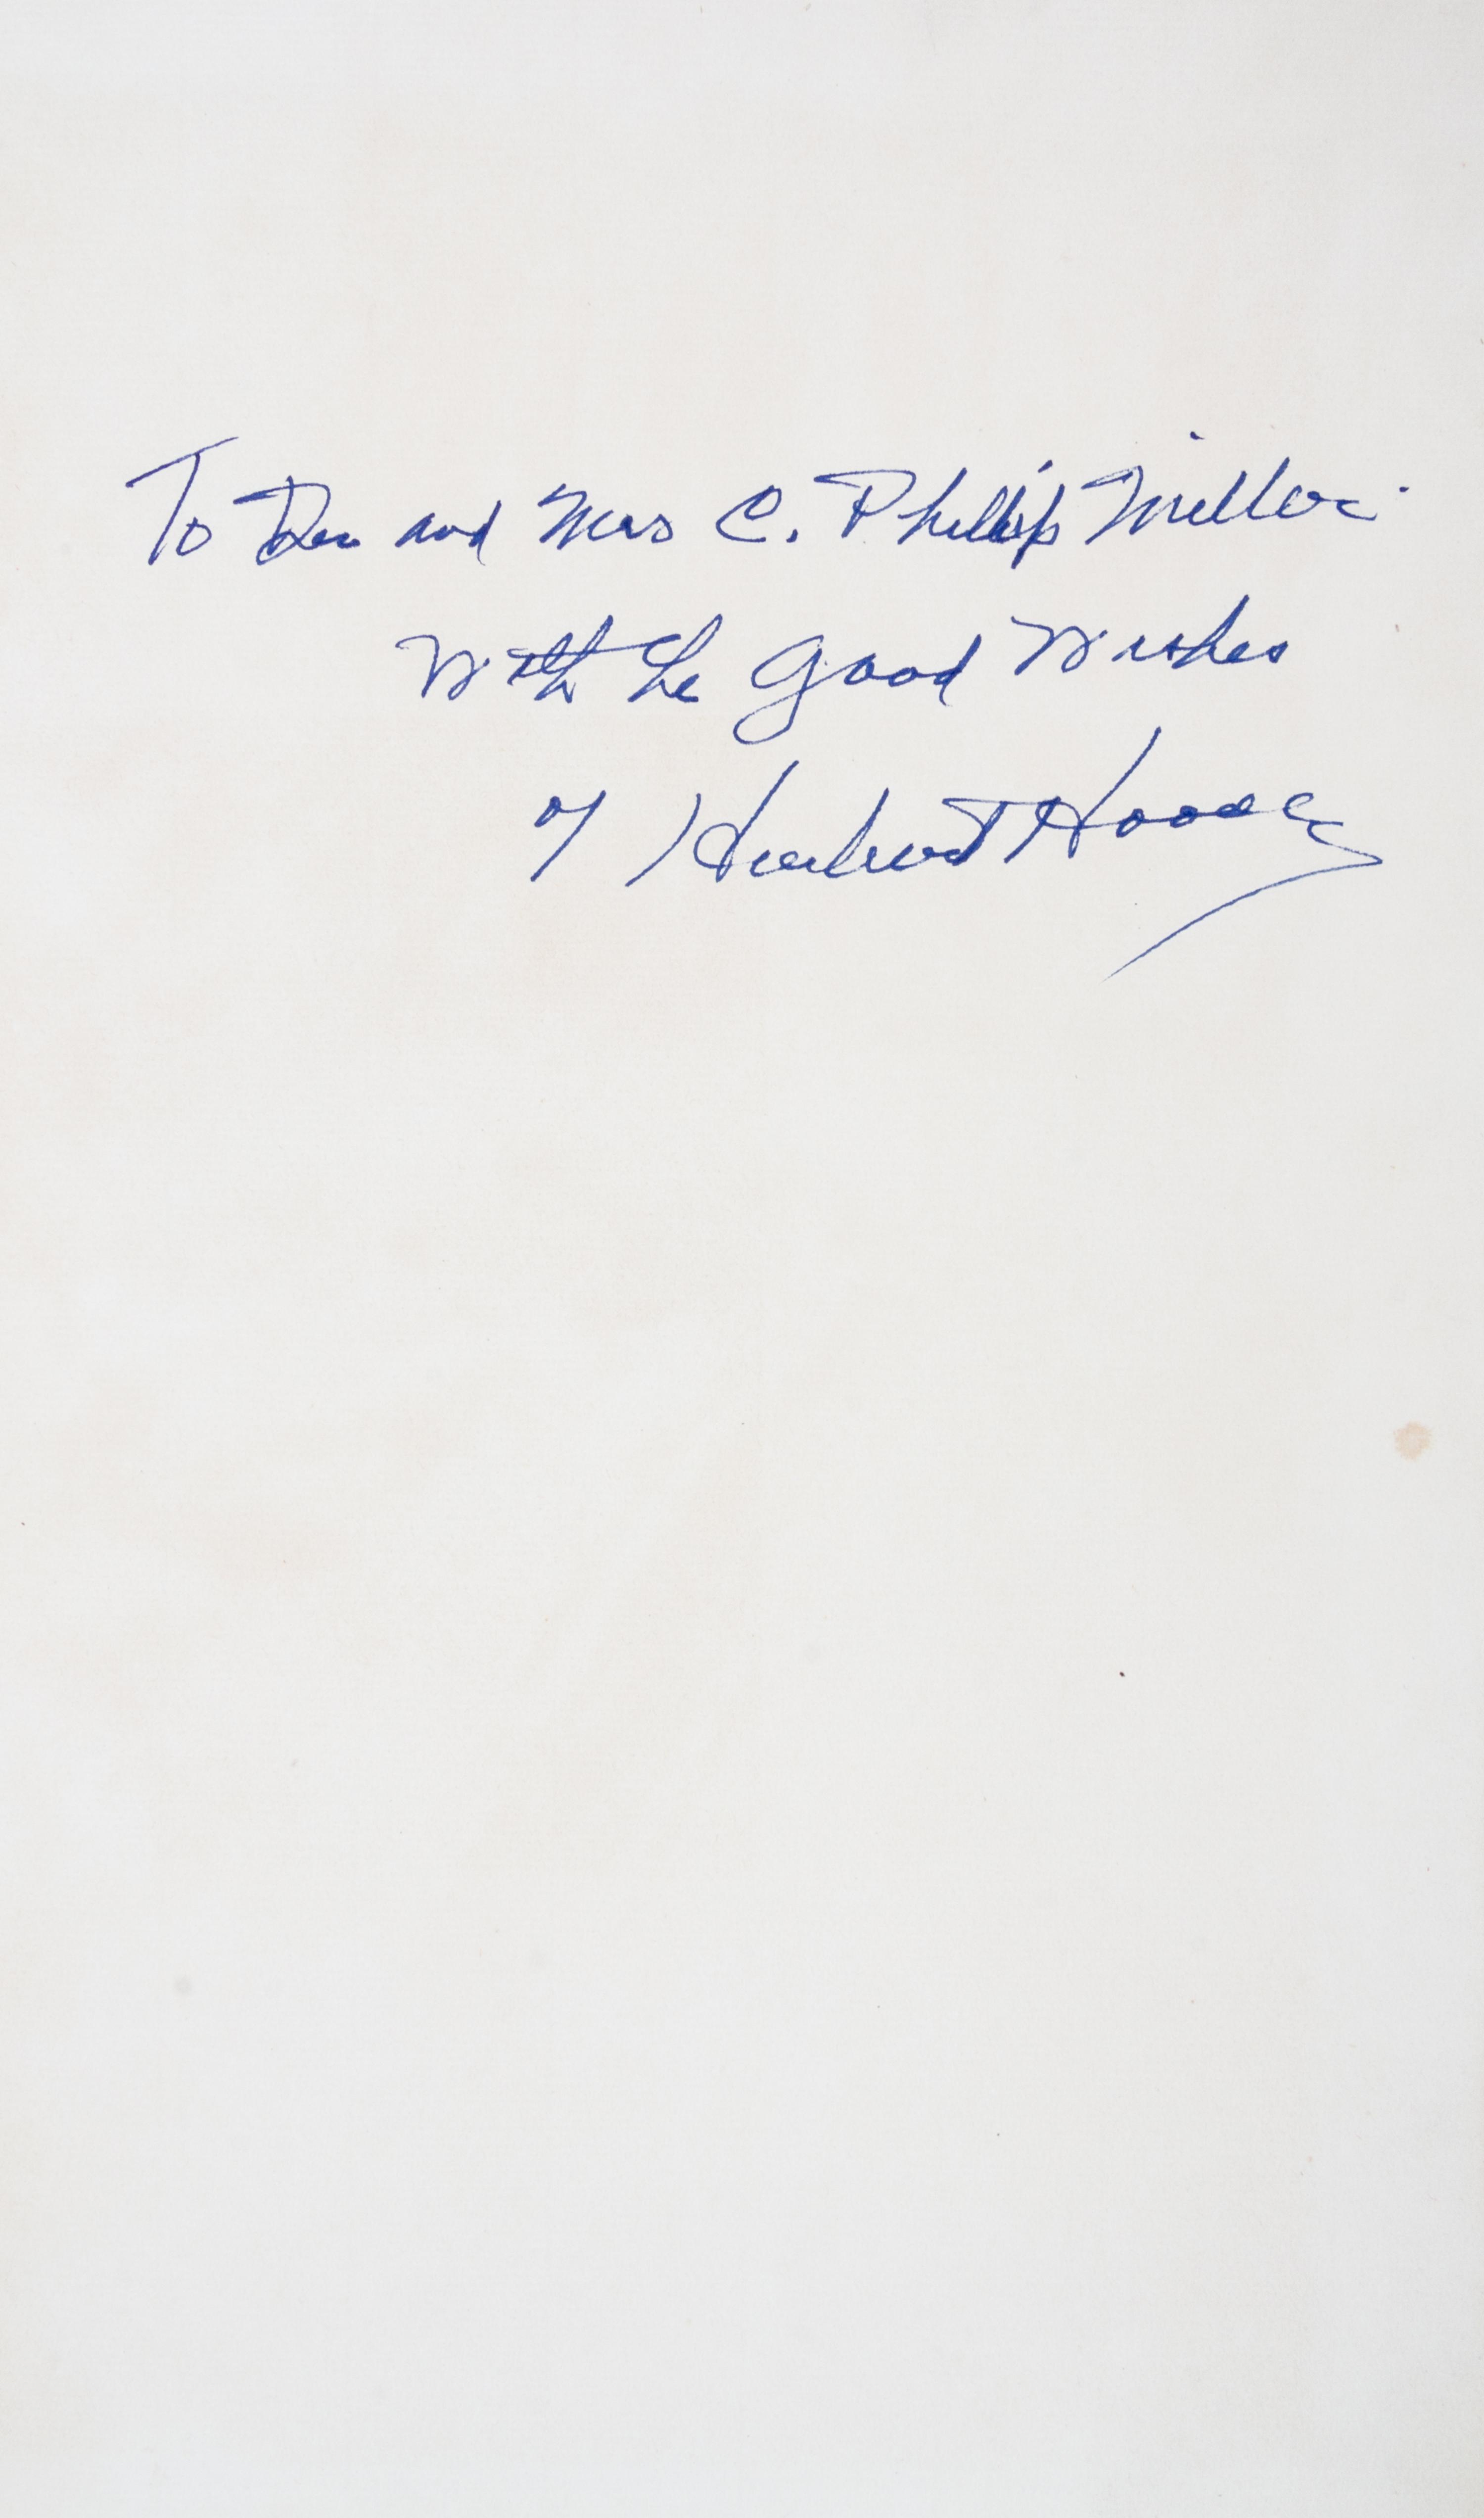 To Dr. and Mrs C. Phillip Miller.
With the Good Wishes
of Herbert Hoover